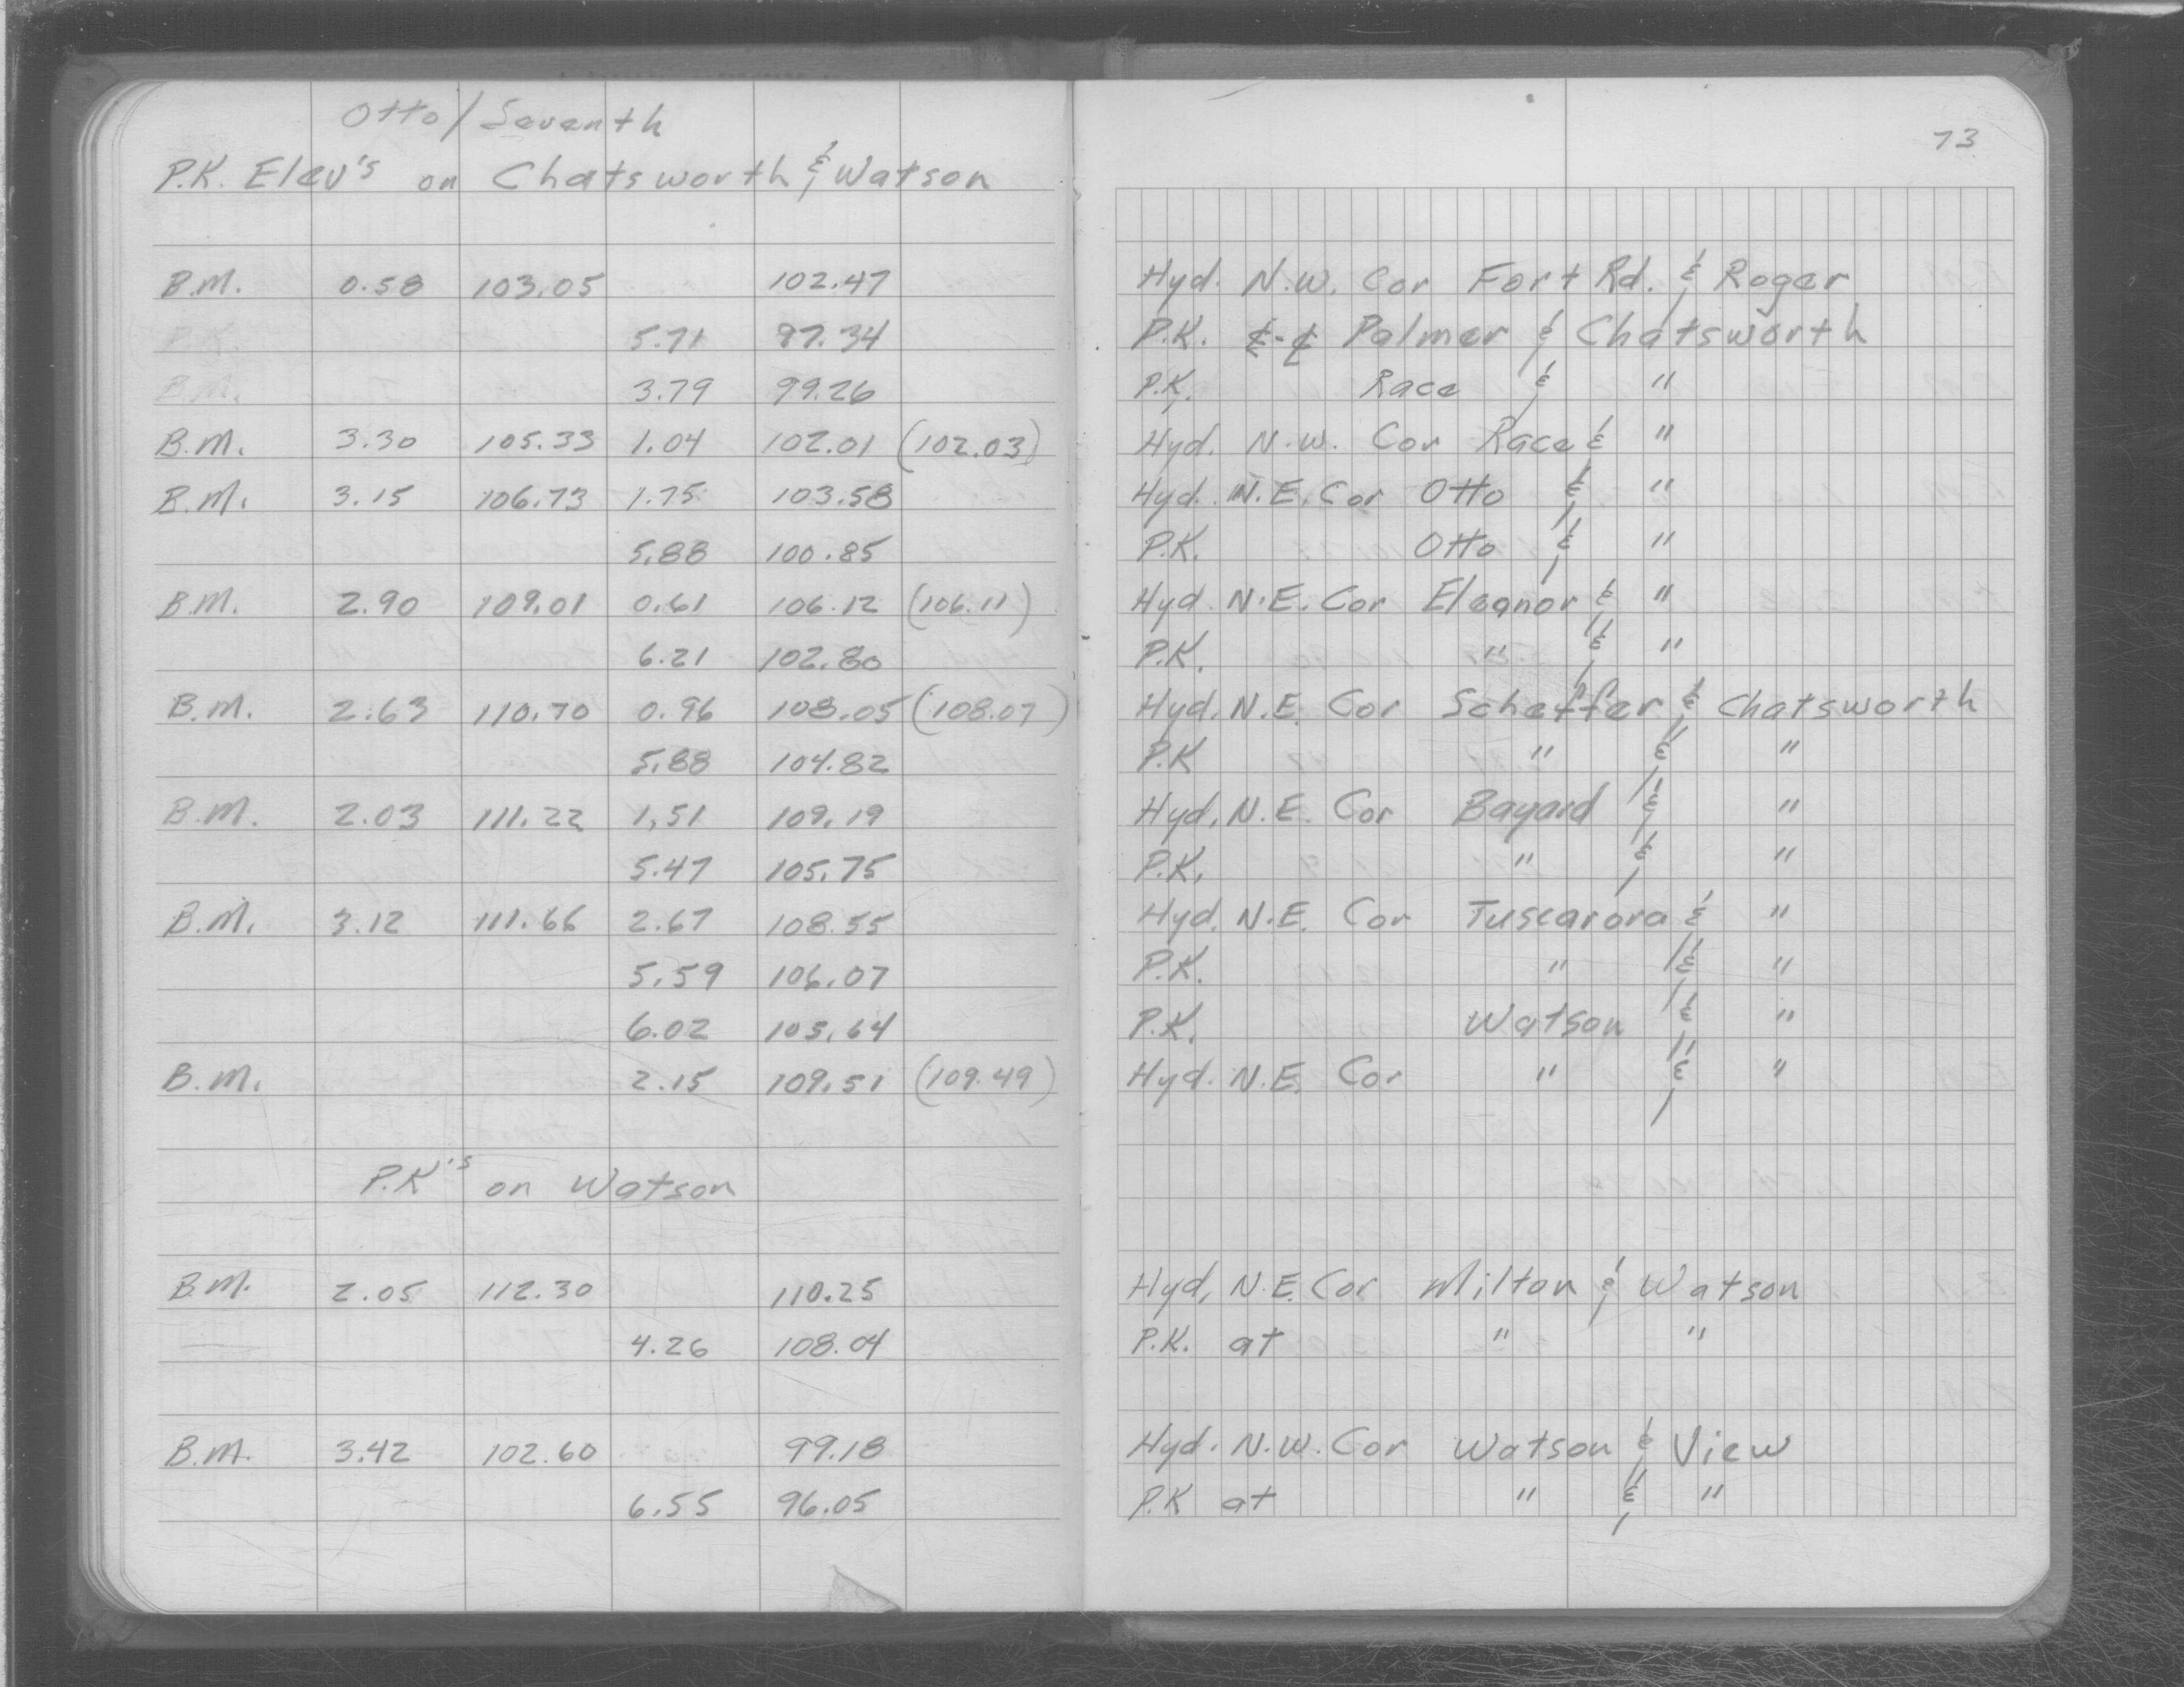 Otto / Seventh
P.K. Elev's on Chatsworth & Watson
73
B.M. 0.58 103.05 102.47 Hyd. N.W. Cor Fort Rd. & Roger
P.K. 5.71 97.34 P.K. ℄-℄ Palmer & Chatsworth
B.M. 3.79 99.26 P.K. Race & "
B.M. 3.30 105.33 1.04 102.01 (102.03) Hyd. N.W. Cor Race & "
B.M. 3.15 106.73 1.75 103.58 Hyd. N.E. Cor Otto & "
5.88 100.85 P.K. Otto & "
B.M. 2.90 109.01 0.61 106.12 (106.11) Hyd. N.E. Cor Eleanor & "
6.21 102.80 P.K. " & "
B.M. 2.63 110.70 0.96 108.05 (108.07) Hyd. N.E. Cor Scheffer & Chatsworth
5.88 104.82 P.K " & "
B.M. 2.03 111.22 1.51 109.19 Hyd. N.E. Cor Bayard & "
5.47 105.75 P.K. " & "
B.M. 3.12 111.66 2.67 108.55 Hyd. N.E. Cor Tuscarora & "
5.59 106.07 P.K. " & "
6.02 105.64 P.K. Watson & "
B.M. 2.15 109.51 (109.49) Hyd. N.E. Cor " & "
P.K's on Watson
B.M. 2.05 112.30 110.25 Hyd. N.E. Cor Milton & Watson
4.26 108.04 P.K. at " "
B.M. 3.42 102.60 99.18 Hyd. N.W. Cor Watson & View
6.55 96.05 P.K at " & "